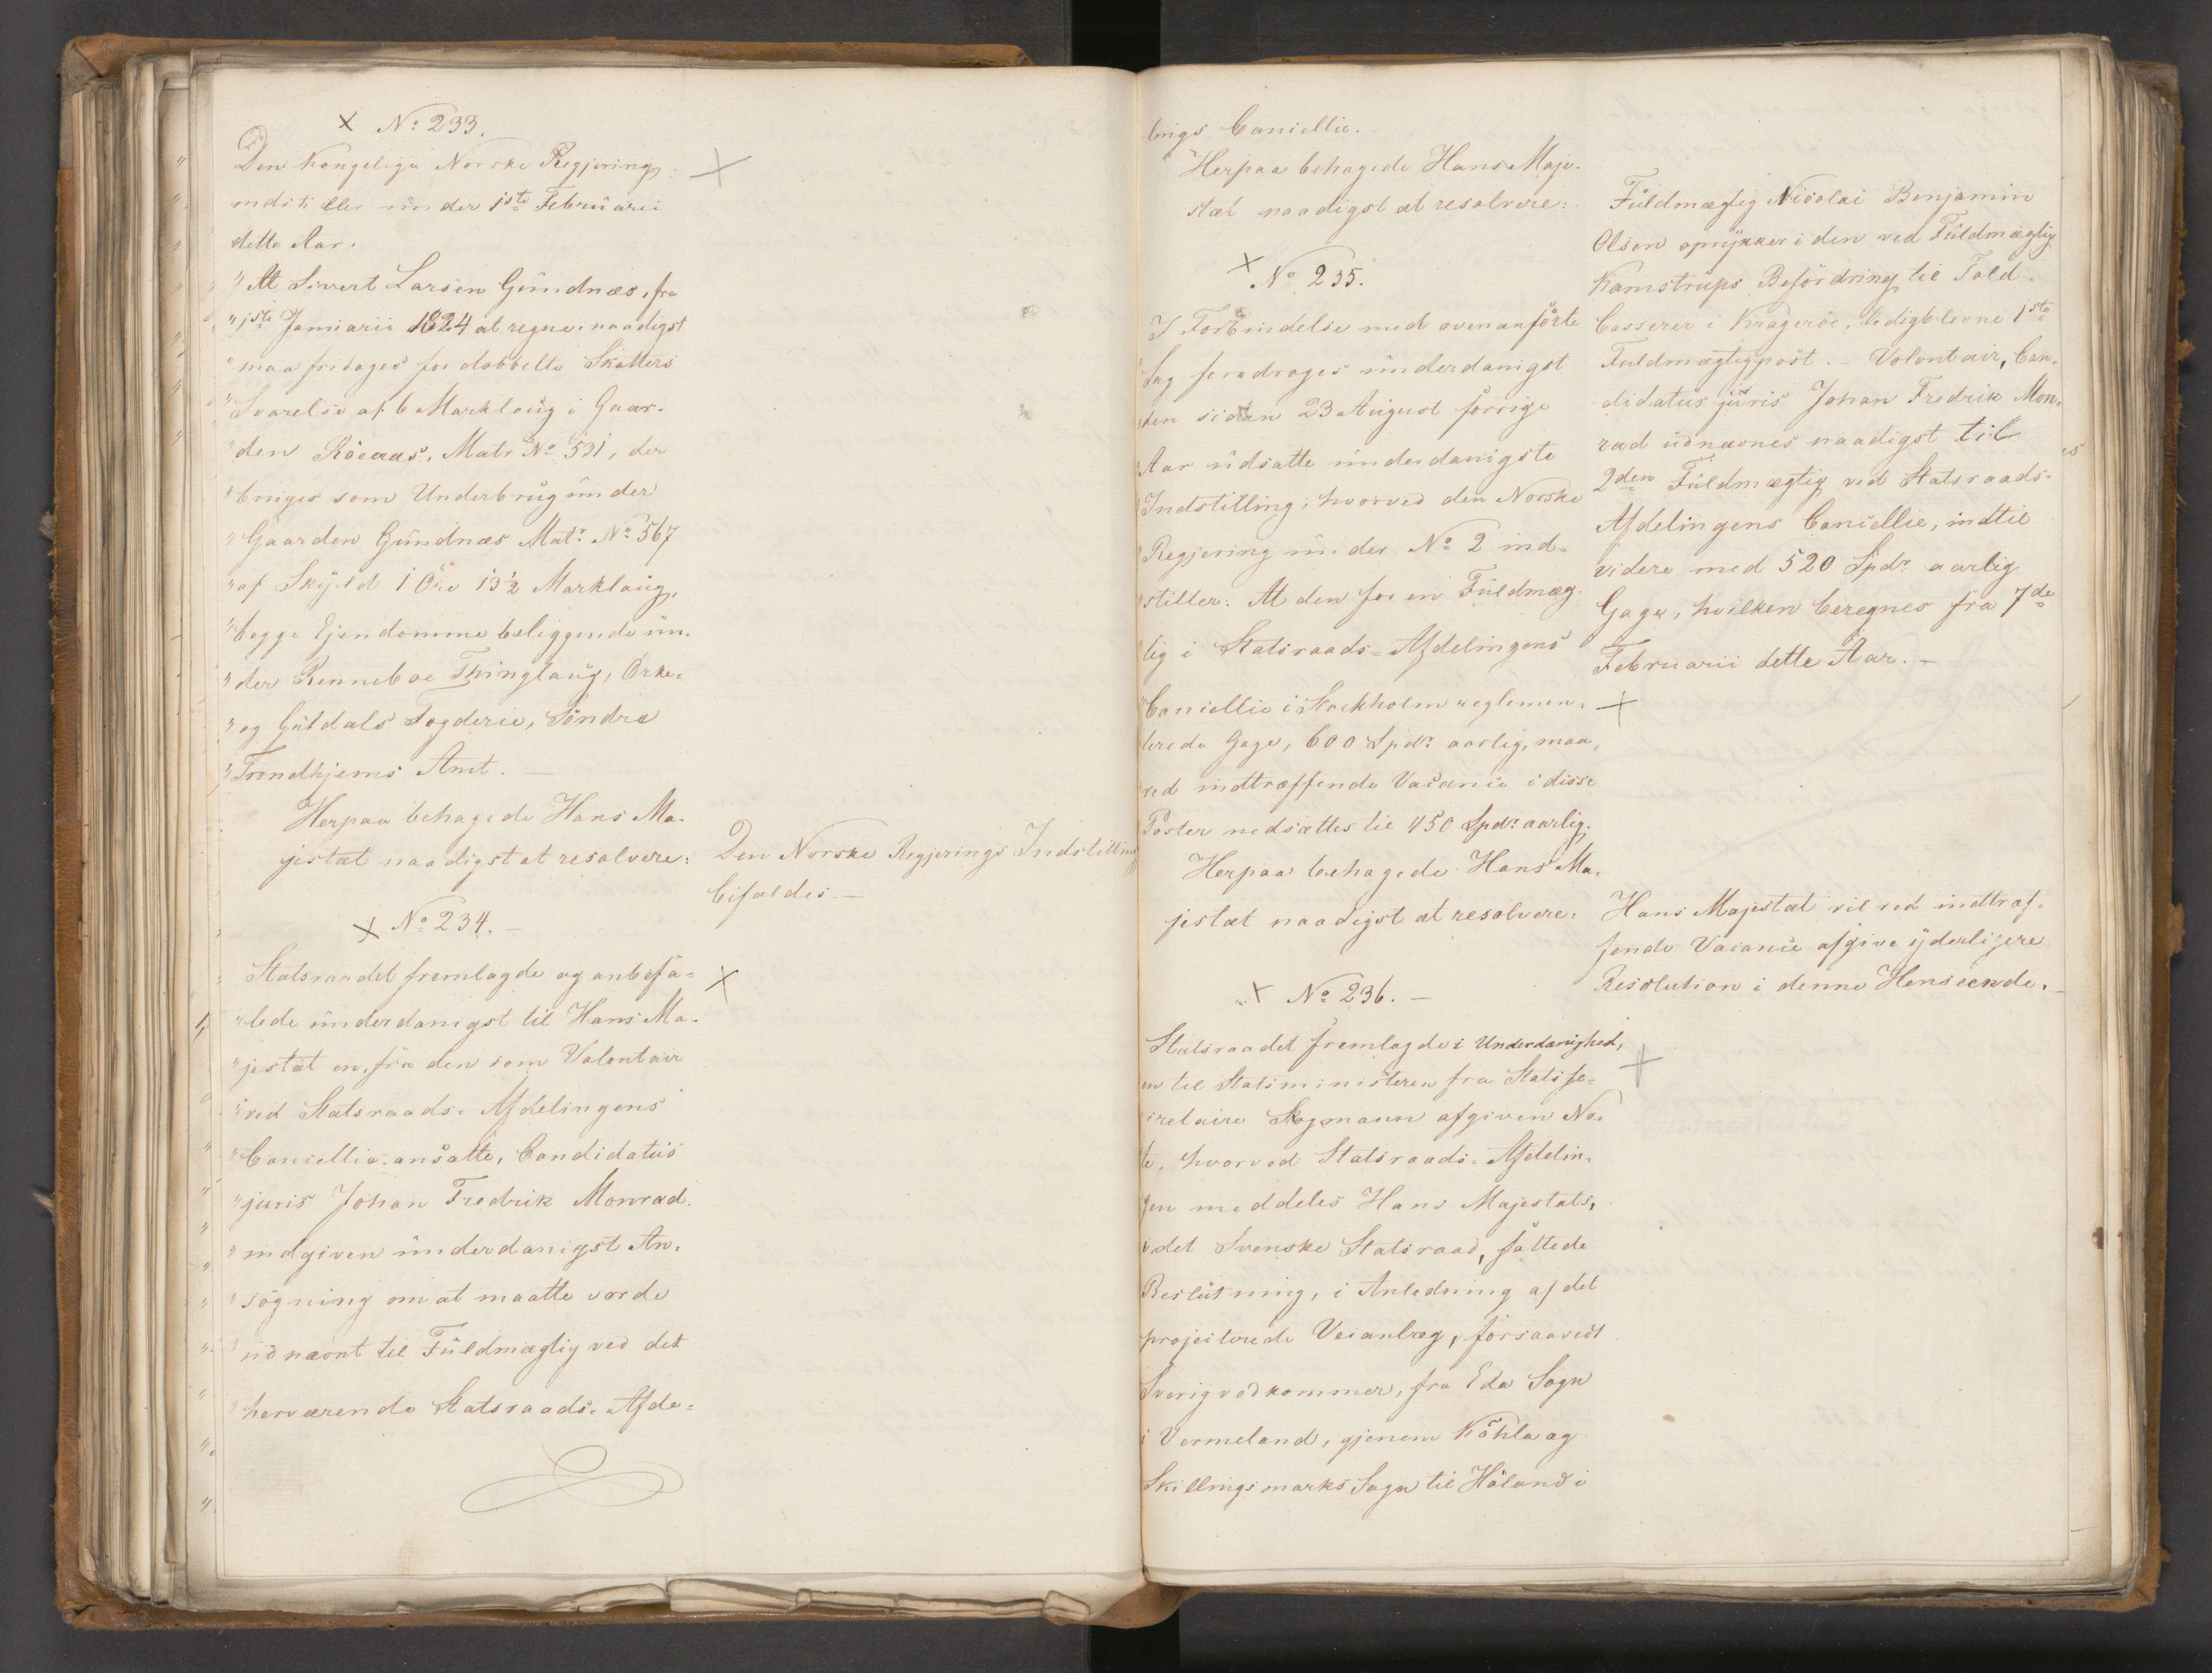 No: 233.
Den Kongelige Norske Regjering
indstiller under 1ste Februarii
dette Aar.
"At Sivert Larsen Gundnæs, fra
"1ste Januarii 1824 at regne, naadigst
"maa fritages for dobbelte Skatters
"Svarelse af 6 Marklaug i Gaar-
"den Röeaas, Matr No 531, der
"bruges som Underbrug under
"Gaarden Gundnæs Matr. No 567
"af Skyld 1 Öre 13½ Marklaug,
"begge Ejendomme beliggende un-
"der Renneboe Thinglaug, Orke-
"og Guldals Fogderie, Söndre
"Trondhjems Amt. —
Herpaa behagede Hans Ma-
jestæt naadigst at resolvere:
Den Norske Regjerings Indstilling
bifaldes. —
No 234. —
Statsraadet fremlagde og anbefa-
"lede underdanigst til Hans Ma-
"jestæt en, fra den som Volontair
"ved Statsraads-Afdelingens
"Cancellie ansatte, Candidatus
"juris Johan Fredrik Monrad
"indgiven underdanigst An-
"sögning om at maatte vorde
"udnævnt til Fuldmægtig ved det
"herværende Statsraads-Afde-
lings Cancellie.
Herpaa behagede Hans Maje-
stæt naadigst at resolvere:
Fuldmægtig Nicolai Benjamin
Olsen oprykker i den ved Fuldmægtig
Kamstrups Befördring til Told-
Casserer i Kragerøe, ledigblevne 1ste
Fuldmægtigpost. — Volontair, Can-
didatus juris Johan Fredrik Mon-
rad udnævnes naadigst til
2den Fuldmægtig ved Statsraads-
Afdelingens Cancellie, indtil
videre med 520 Spdr aarlig
Gage, hvilken beregnes fra 7de
Februarii dette Aar. —
No 235.
I Forbindelse med ovenanförte
Sag foredroges underdanigst
den siden 23 August forrige
Aar udsatte underdanigste
Indstilling, hvorved den Norske
Regjering under No 2 ind-
"stiller: At den for en Fuldmæg-
tig i Statsraads-Afdelingens
"Cancellie i Stockholm reglemen-
terede Gage, 600 Spdr aarlig, maa,
"ved indtræffende Vacance i disse
Poster nedsættes til 450 Spdr aarlig.
Herpaa behagede Hans Ma-
jestæt naadigst at resolvere:
Hans Majestæt vil ved indtræf-
fende Vacance afgive yderligere
Resolution i denne Henseende. —
No 236. —
Statsraadet fremlagde i Underdanighed,
en til Statsministeren fra Statsse-
cretaire Skogmann afgiven No-
te, hvorved Statsraads-Afdelin-
gen meddeles Hans Majestæts,
i det Svenske Statsraad, fattede
Beslutning, i Anledning af det
projecterede Veianlæg, forsaavidt
Sverig vedkommer, fra Eda Sogn
i Vermeland, gjenem Köhla og
Skillingsmarks Sogn til Höland i